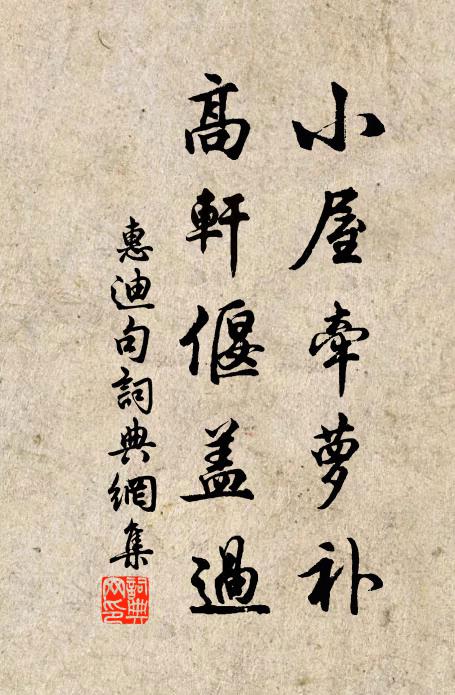 小屋牵萝补
高軒偃盖過
惠迪句詞典網集
詞典網印